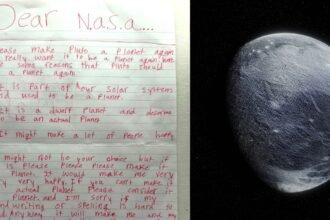 Dear N.a.s.a...
please make Pluto a planet again
really want it to be a planet again
some reasons that Pluto should
a planet again
it is part of our solar systems
nd used to be a planet.
it is a dwarf Planet and deserve
to be an actual Planet
It might make a lot of people happy
might not be your choice but if
is Please Please Please make it
Planet. It would make me very
y very happy. If you can't make it
actual Planet Please consider it
Planet. and I'm sorry if my
and writing or spelling is hard to
ad. Anyway, it will make me and my